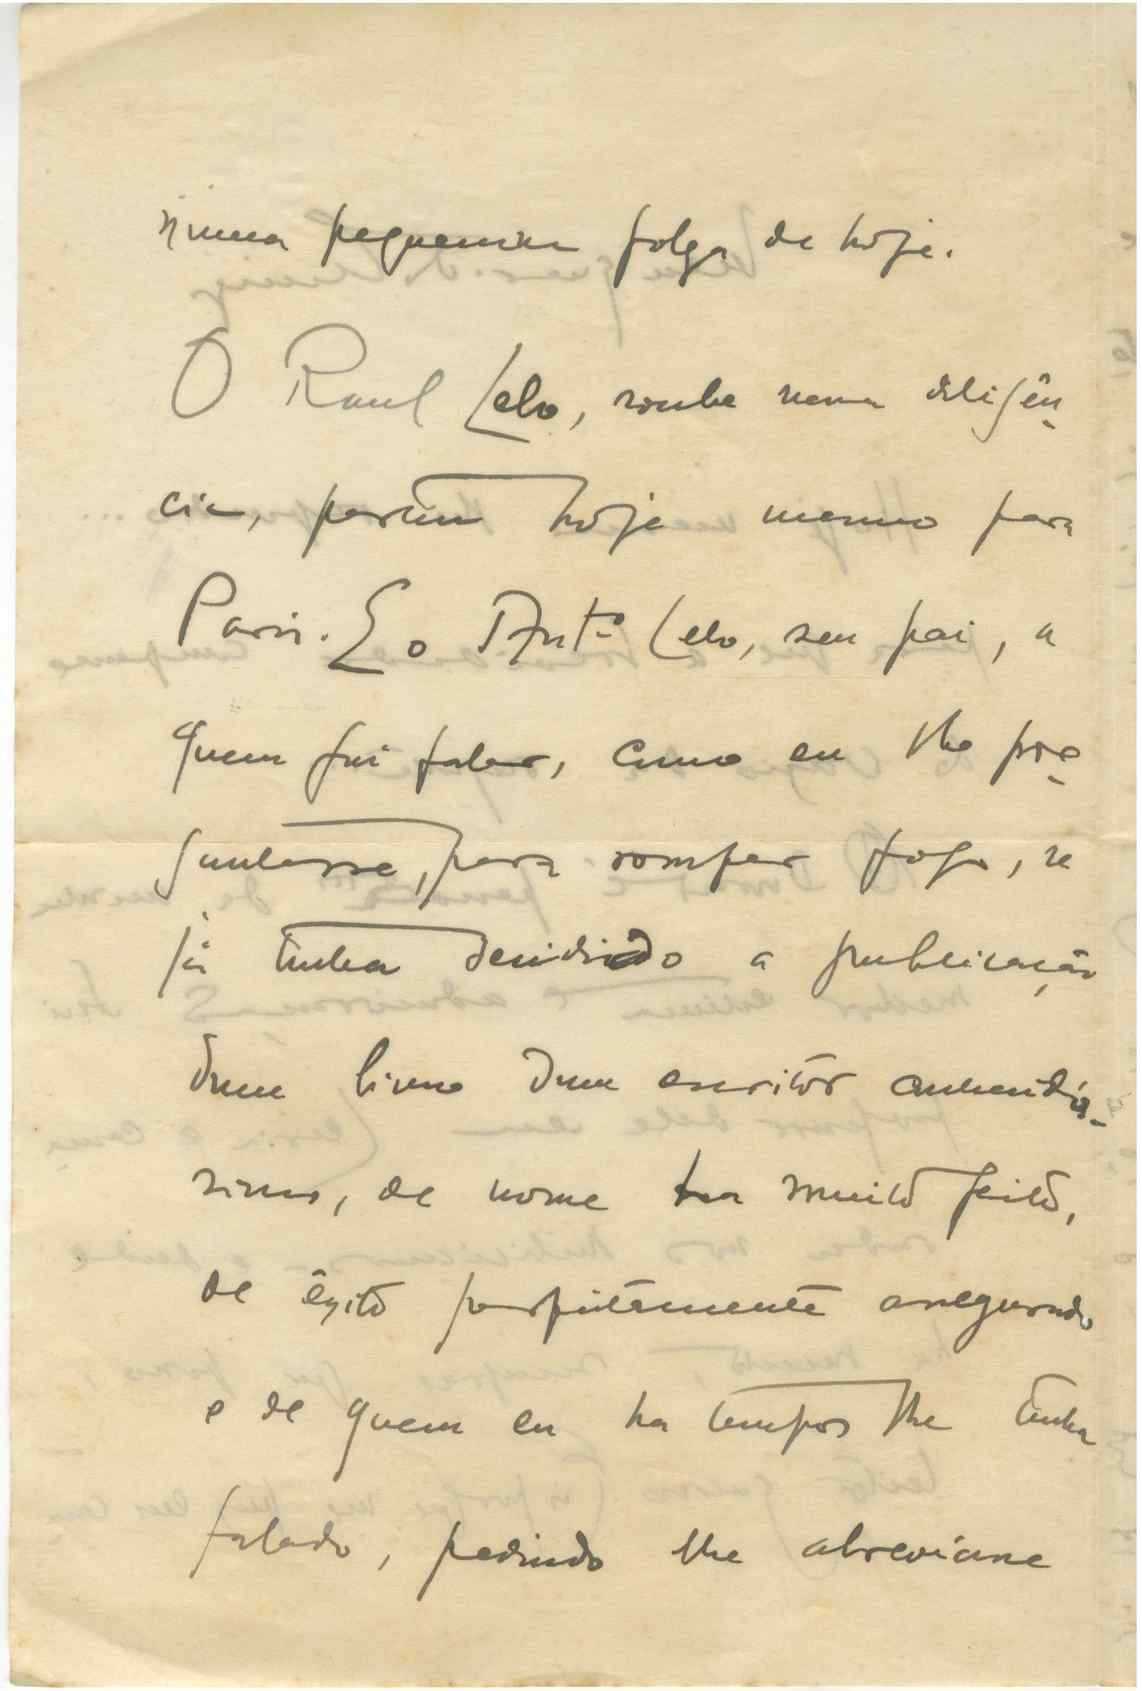 numa pequenina folga de hoje.
O Raul Lelo, soube nessa diligên-
cia, partiu hoje mesmo para
Paris. E o Antº Lelo, seu pai, a
quem fui falar, como eu lhe pre-
guntasse, para romper fogo, se
já tinha decidido a publicação
dum livro dum escritor
de nome ha muito feito,
de êxito perfeitamente assegurado
e de quem eu ha tempos lhe tinha
falado, pedindo lhe abreviasse